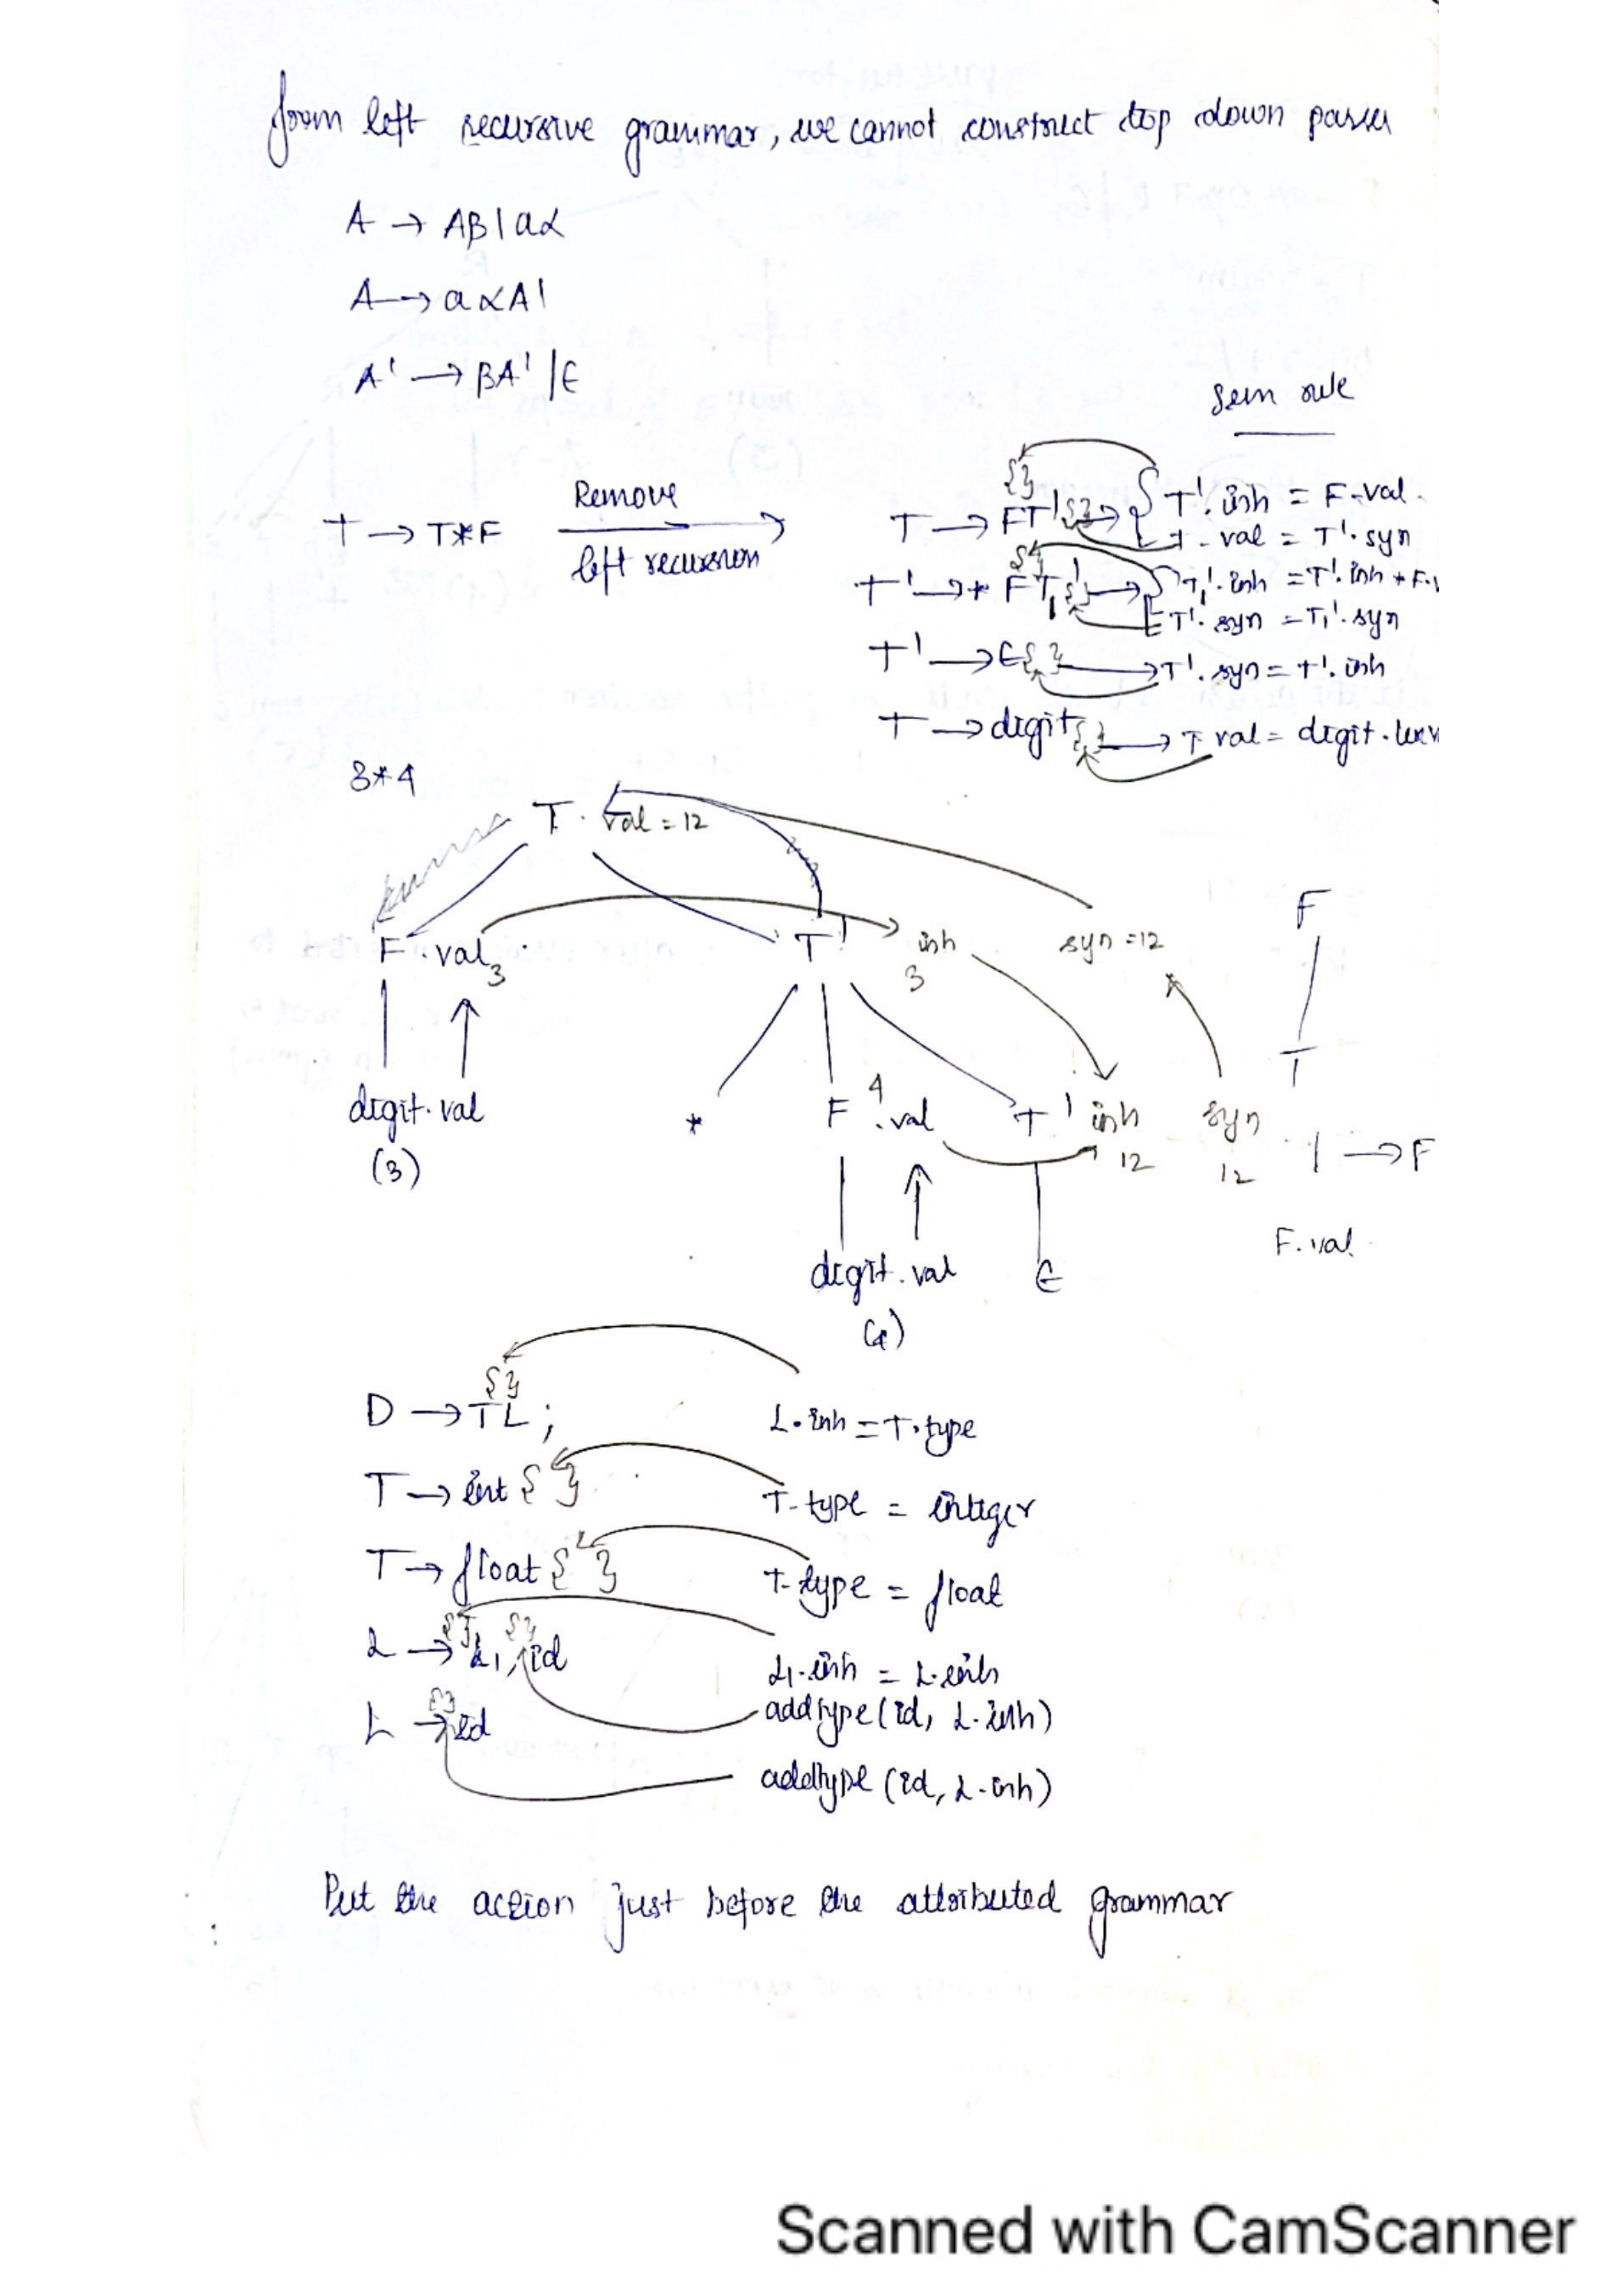 from left recursive grammar, we cannot construct top down parser
A → Aβ | aα
A → aαA'
A' → βA' | ϵ
Sem rule
T → T*F Remove left recursion
T → FT' { } → { T'.inh = F.val
T.val = T'.syn
T' → * F T₁' { } → { T₁'.inh = T'.inh * F.v
T'.syn = T₁'.syn
T' → ϵ { } → T'.syn = T'.inh
T → digit { } → T val = digit.lexv
3*4
T . val = 12
F . val 3
T' inh 3 syn = 12
F
T
digit.val
(3)
*
F 4 .val
T' inh 12 syn 12
| → F
F.val
digit.val
(4)
ϵ
D → T { } L ; L.inh = T.type
T → int { } T.type = integer
T → float { } T.type = float
L → { } L₁, { } id L₁.inh = L.inh
addtype(id, L.inh)
L → { } id
addtype(id, L.inh)
Put the action just before the attributed grammar
Scanned with CamScanner